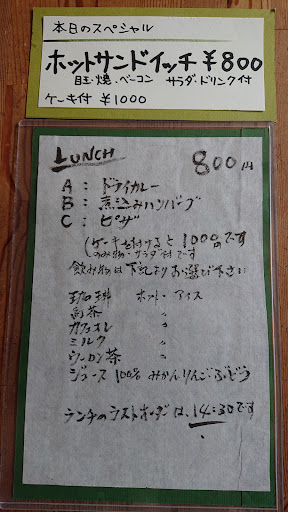 本日のスペシャル
ホットサンドイッチ ¥800
目玉焼・ベーコン サラダ・ドリンク付
ケーキ付 ¥1000
LUNCH 800円
A: ドライカレー
B: 煮込みハンバーグ
C: ピザ
(ケーキを付けると1000円です
のみ物・サラダ付です
飲み物は下記よりお選び下さい
珈琲 ホット・アイス
紅茶 〃
カフェオレ 〃
ミルク 〃
ウーロン茶 〃
ジュース 100% みかん りんご ぶどう
ランチのラストオーダーは、14:30です